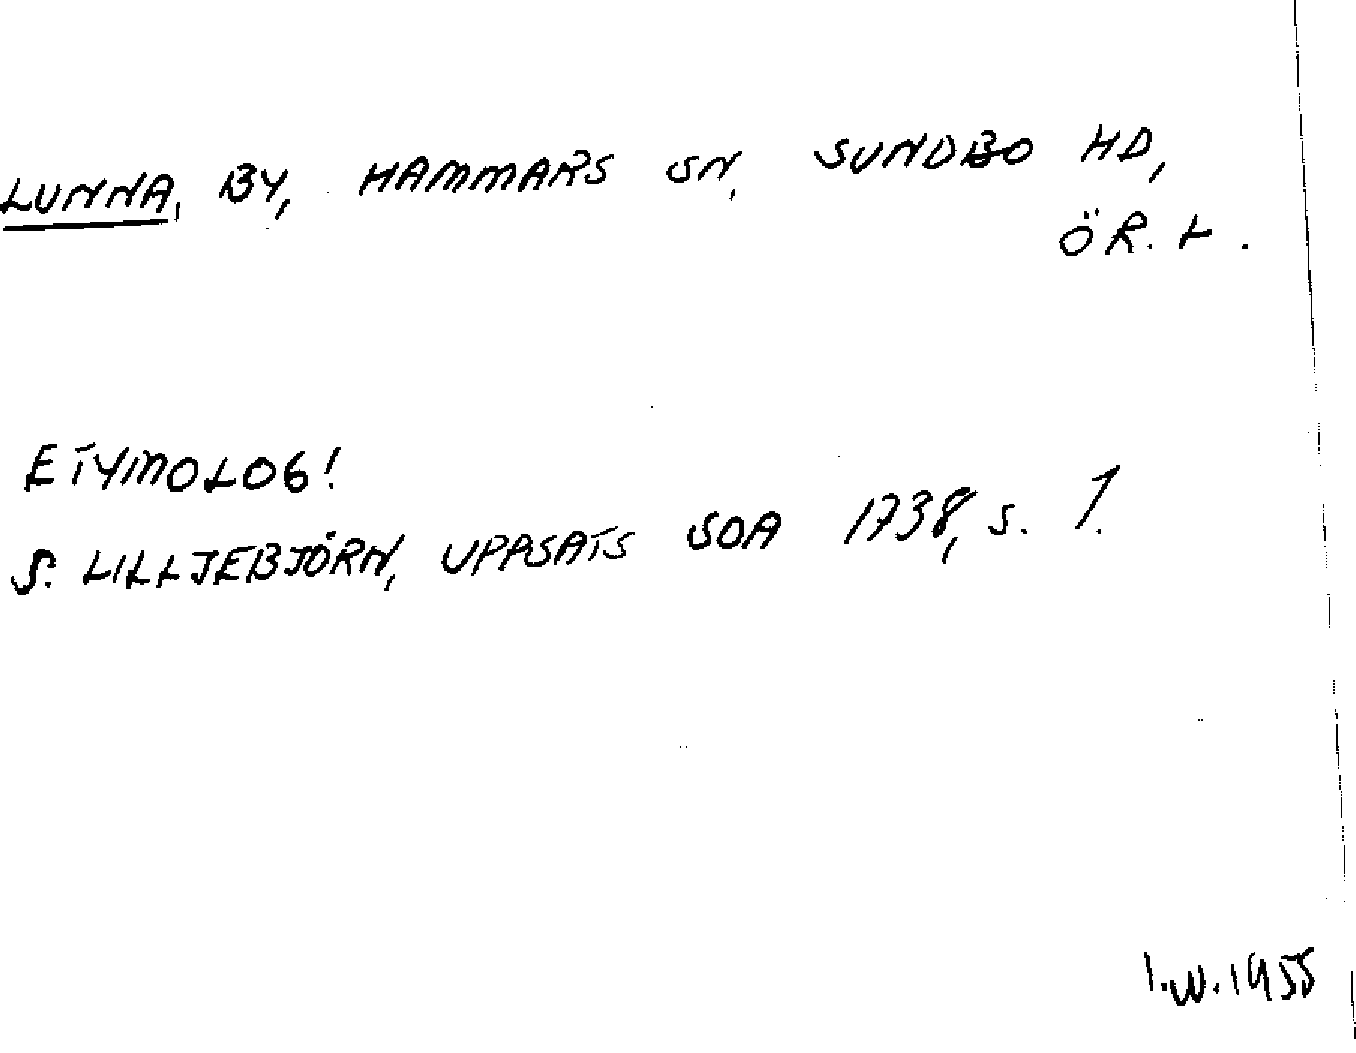 LUNNA, BY, HAMMARS SN, SUNDBO HD,
ÖR. L.
ETYMOLOG!
S. LILLJEBJÖRN, UPPSATS SOA 1738, s. 1.
I.W. 1955